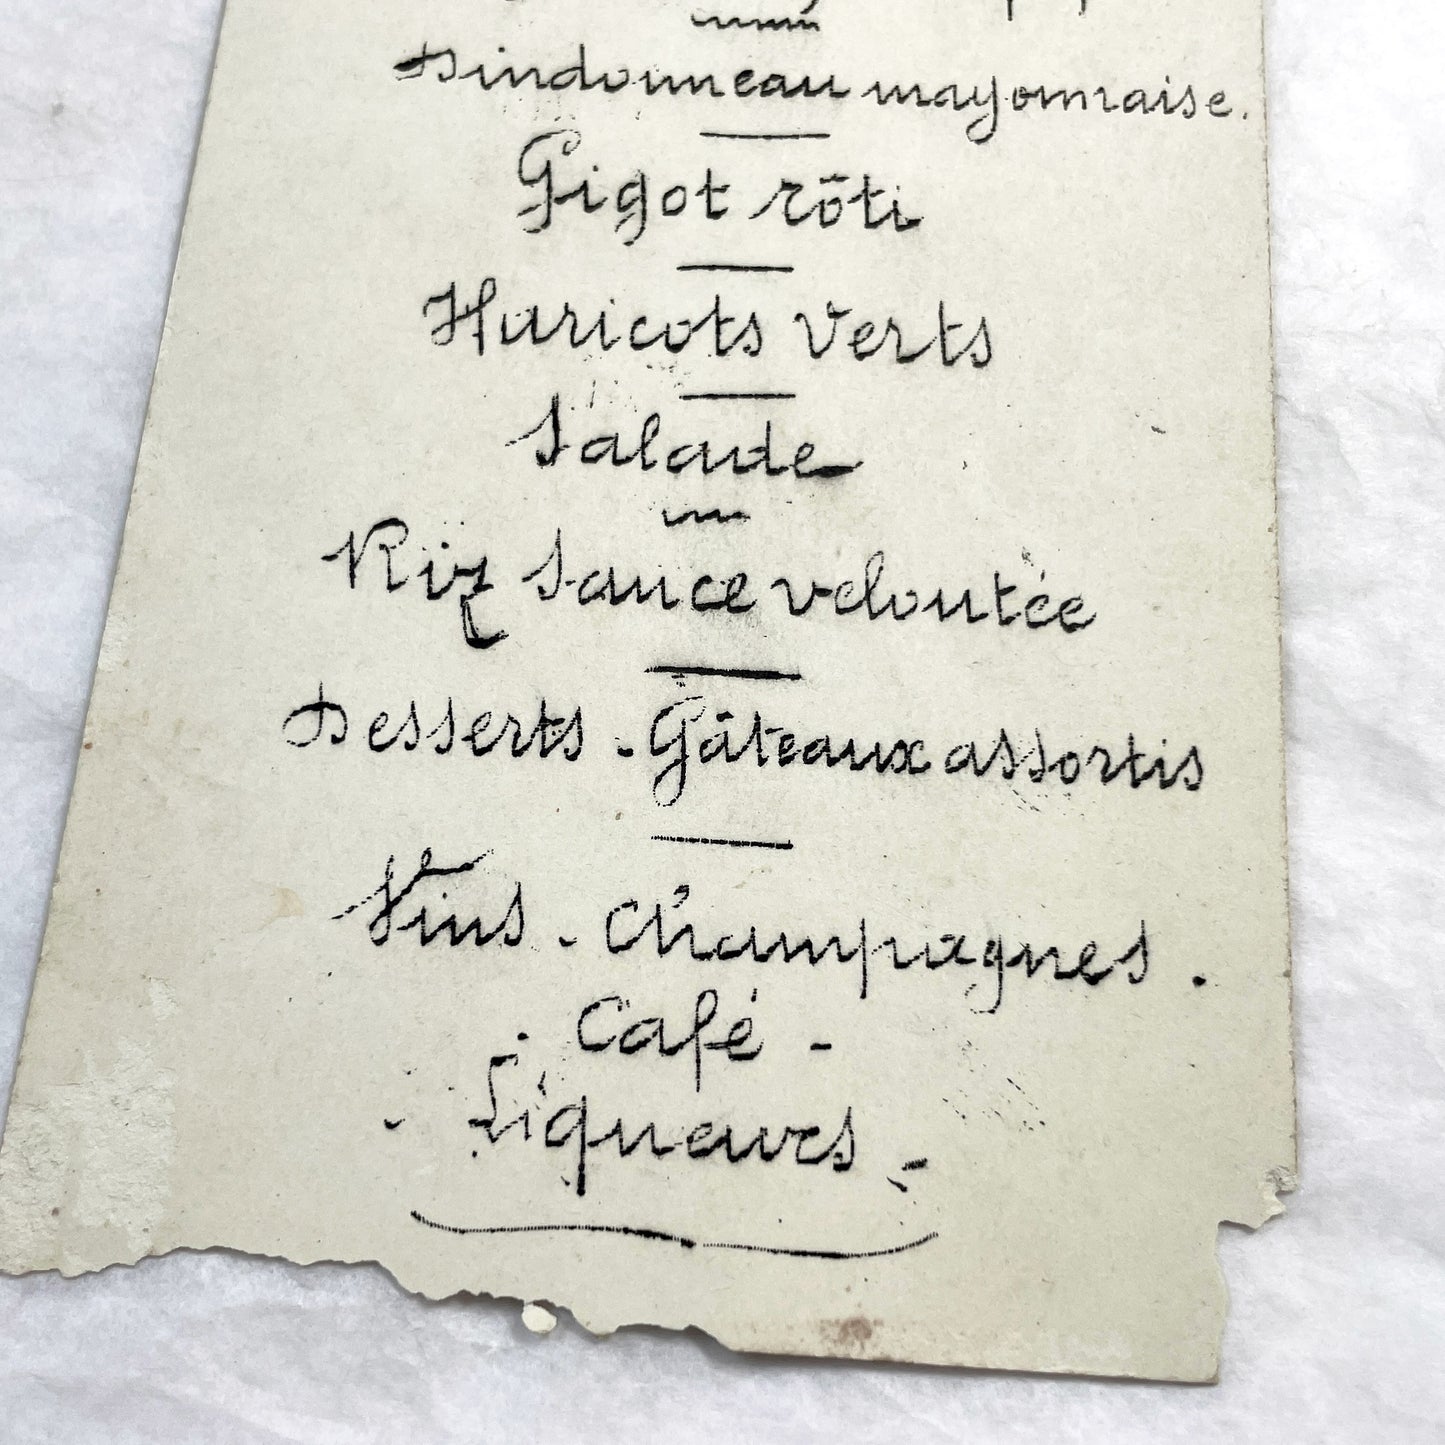 Dindonneau mayonnaise.
Gigot rôti
Haricots Verts
Salade
Riz Sauce veloutée
Desserts - Gâteaux assortis
Vins - Champagnes.
- Café -
- Liqueurs -